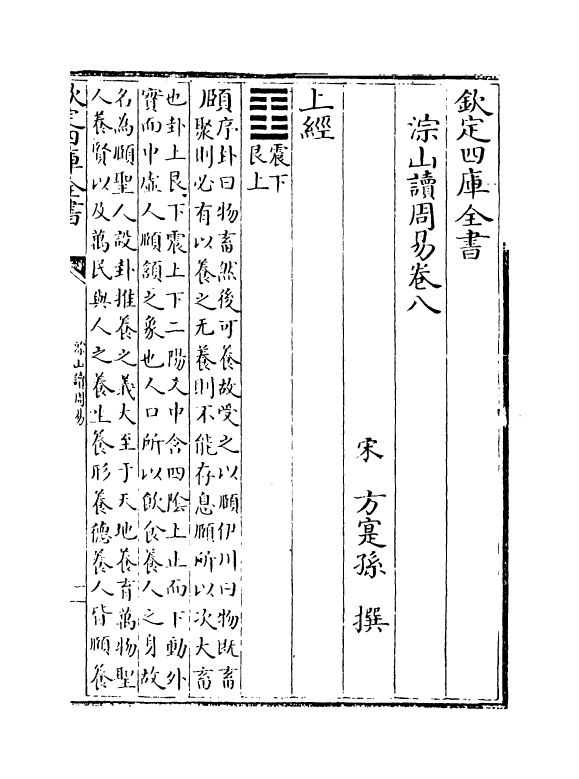 欽定四庫全書
淙山讀周易卷八
宋 方寔孫 撰
上經
震下
艮上
頤序卦曰物畜然後可養故受之以頤伊川曰物既畜
頤聚則必有以養之无養則不能存息頤所以次大畜
也卦上艮下震上下二陽爻中含四陰上止而下動外
實而中虛人頤頷之象也人口所以飲食養人之身故
名為頤聖人設卦推養之義大至于天地養育萬物聖
人養賢以及萬民與人之養生養形養德養人皆頤養
欽定四庫全書
淙山讀周易
一